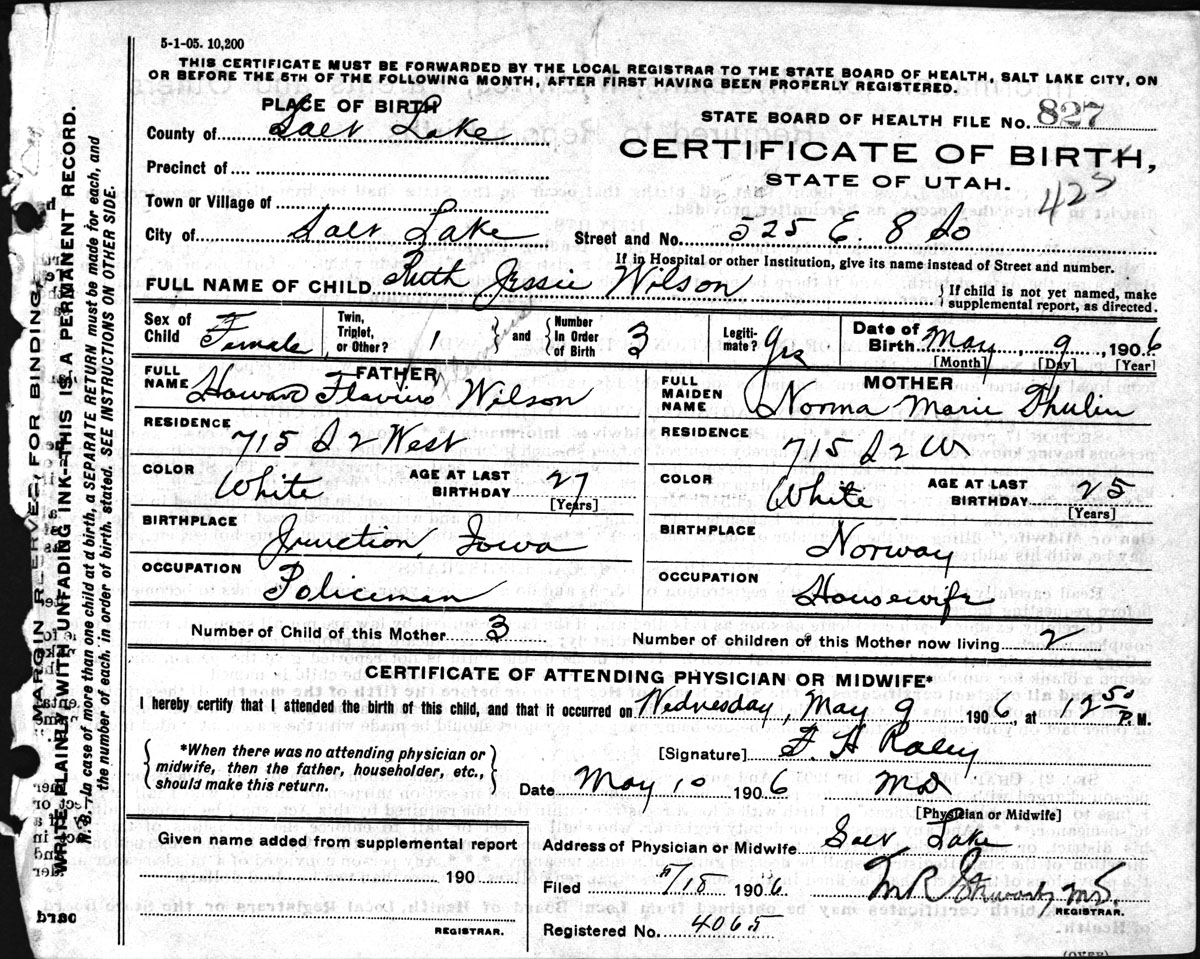 5-1-05. 10,200
THIS CERTIFICATE MUST BE FORWARDED BY THE LOCAL REGISTRAR TO THE STATE BOARD OF HEALTH, SALT LAKE CITY, ON
OR BEFORE THE 5TH OF THE FOLLOWING MONTH, AFTER FIRST HAVING BEEN PROPERLY REGISTERED.
PLACE OF BIRTH
STATE BOARD OF HEALTH FILE No. 827
County of Salt Lake
CERTIFICATE OF BIRTH,
Precinct of
STATE OF UTAH.
425
Town or Village of
City of Salt Lake Street and No. 525 E. 8 So
If in Hospital or other Institution, give its name instead of Street and number.
FULL NAME OF CHILD Ruth Jessie Wilson {If child is not yet named, make supplemental report, as directed.
Sex of Child Female Twin, Triplet, or Other? 1 and Number In Order of Birth 3 Legiti- mate? Yes Date of Birth May 9, 1906
[Month] [Day] [Year]
FATHER
FULL NAME Howard Flavius Wilson
RESIDENCE 715 S 2 West
COLOR White AGE AT LAST BIRTHDAY 27
[Years]
BIRTHPLACE Junction, Iowa
OCCUPATION Policeman
MOTHER
FULL MAIDEN NAME Norma Marie Thulin
RESIDENCE 715 S 2 W
COLOR White AGE AT LAST BIRTHDAY 25
[Years]
BIRTHPLACE Norway
OCCUPATION Housewife
Number of Child of this Mother 3 Number of children of this Mother now living 2
CERTIFICATE OF ATTENDING PHYSICIAN OR MIDWIFE*
I hereby certify that I attended the birth of this child, and that it occurred on Wednesday, May 9 1906, at 12 50 P. M.
{*When there was no attending physician or
midwife, then the father, householder, etc.,
should make this return.}
[Signature] F. H. Raley
Date May 10 1906 MD
[Physician or Midwife]
Given name added from supplemental report
190
REGISTRAR.
Address of Physician or Midwife Salt Lake
Filed 5/15 1906
REGISTRAR.
Registered No. 4065
(OVER)
MARGIN RESERVED FOR BINDING.
WRITE PLAINLY WITH UNFADING INK—THIS IS A PERMANENT RECORD.
N. B.—In case of more than one child at a birth, a SEPARATE RETURN must be made for each, and
the number of each, in order of birth, stated. SEE INSTRUCTIONS ON OTHER SIDE.